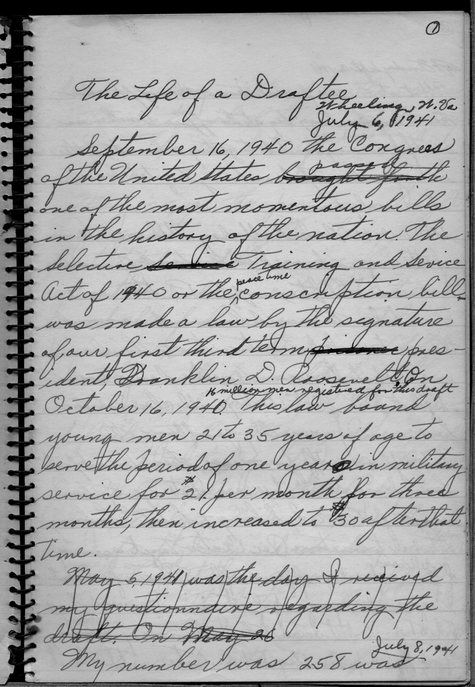 1
The Life of a Draftee
Wheeling, W. Va
July 6, 1941
September 16, 1940 the Congress
passed
of the United States brought forth
one of the most momentous bills
in the history of the nation. The
Selective Service Training and Sevice
peace time
Act of 1940 or the conscription bill
was made a law by the signature
of our first third term pres-
ident, Franklin D. Roosevelt. On
16 million men registered for this draft
October 16, 1940 this law bound
young men 21 to 35 years of age to
serve the period of one year in military
service for $21 per month for three
months, then increased to $30 after that
time.
May 5, 1941 was the day I received
my questionnaire regarding the
draft. On May 26
July 8, 1941
My number was 258 was